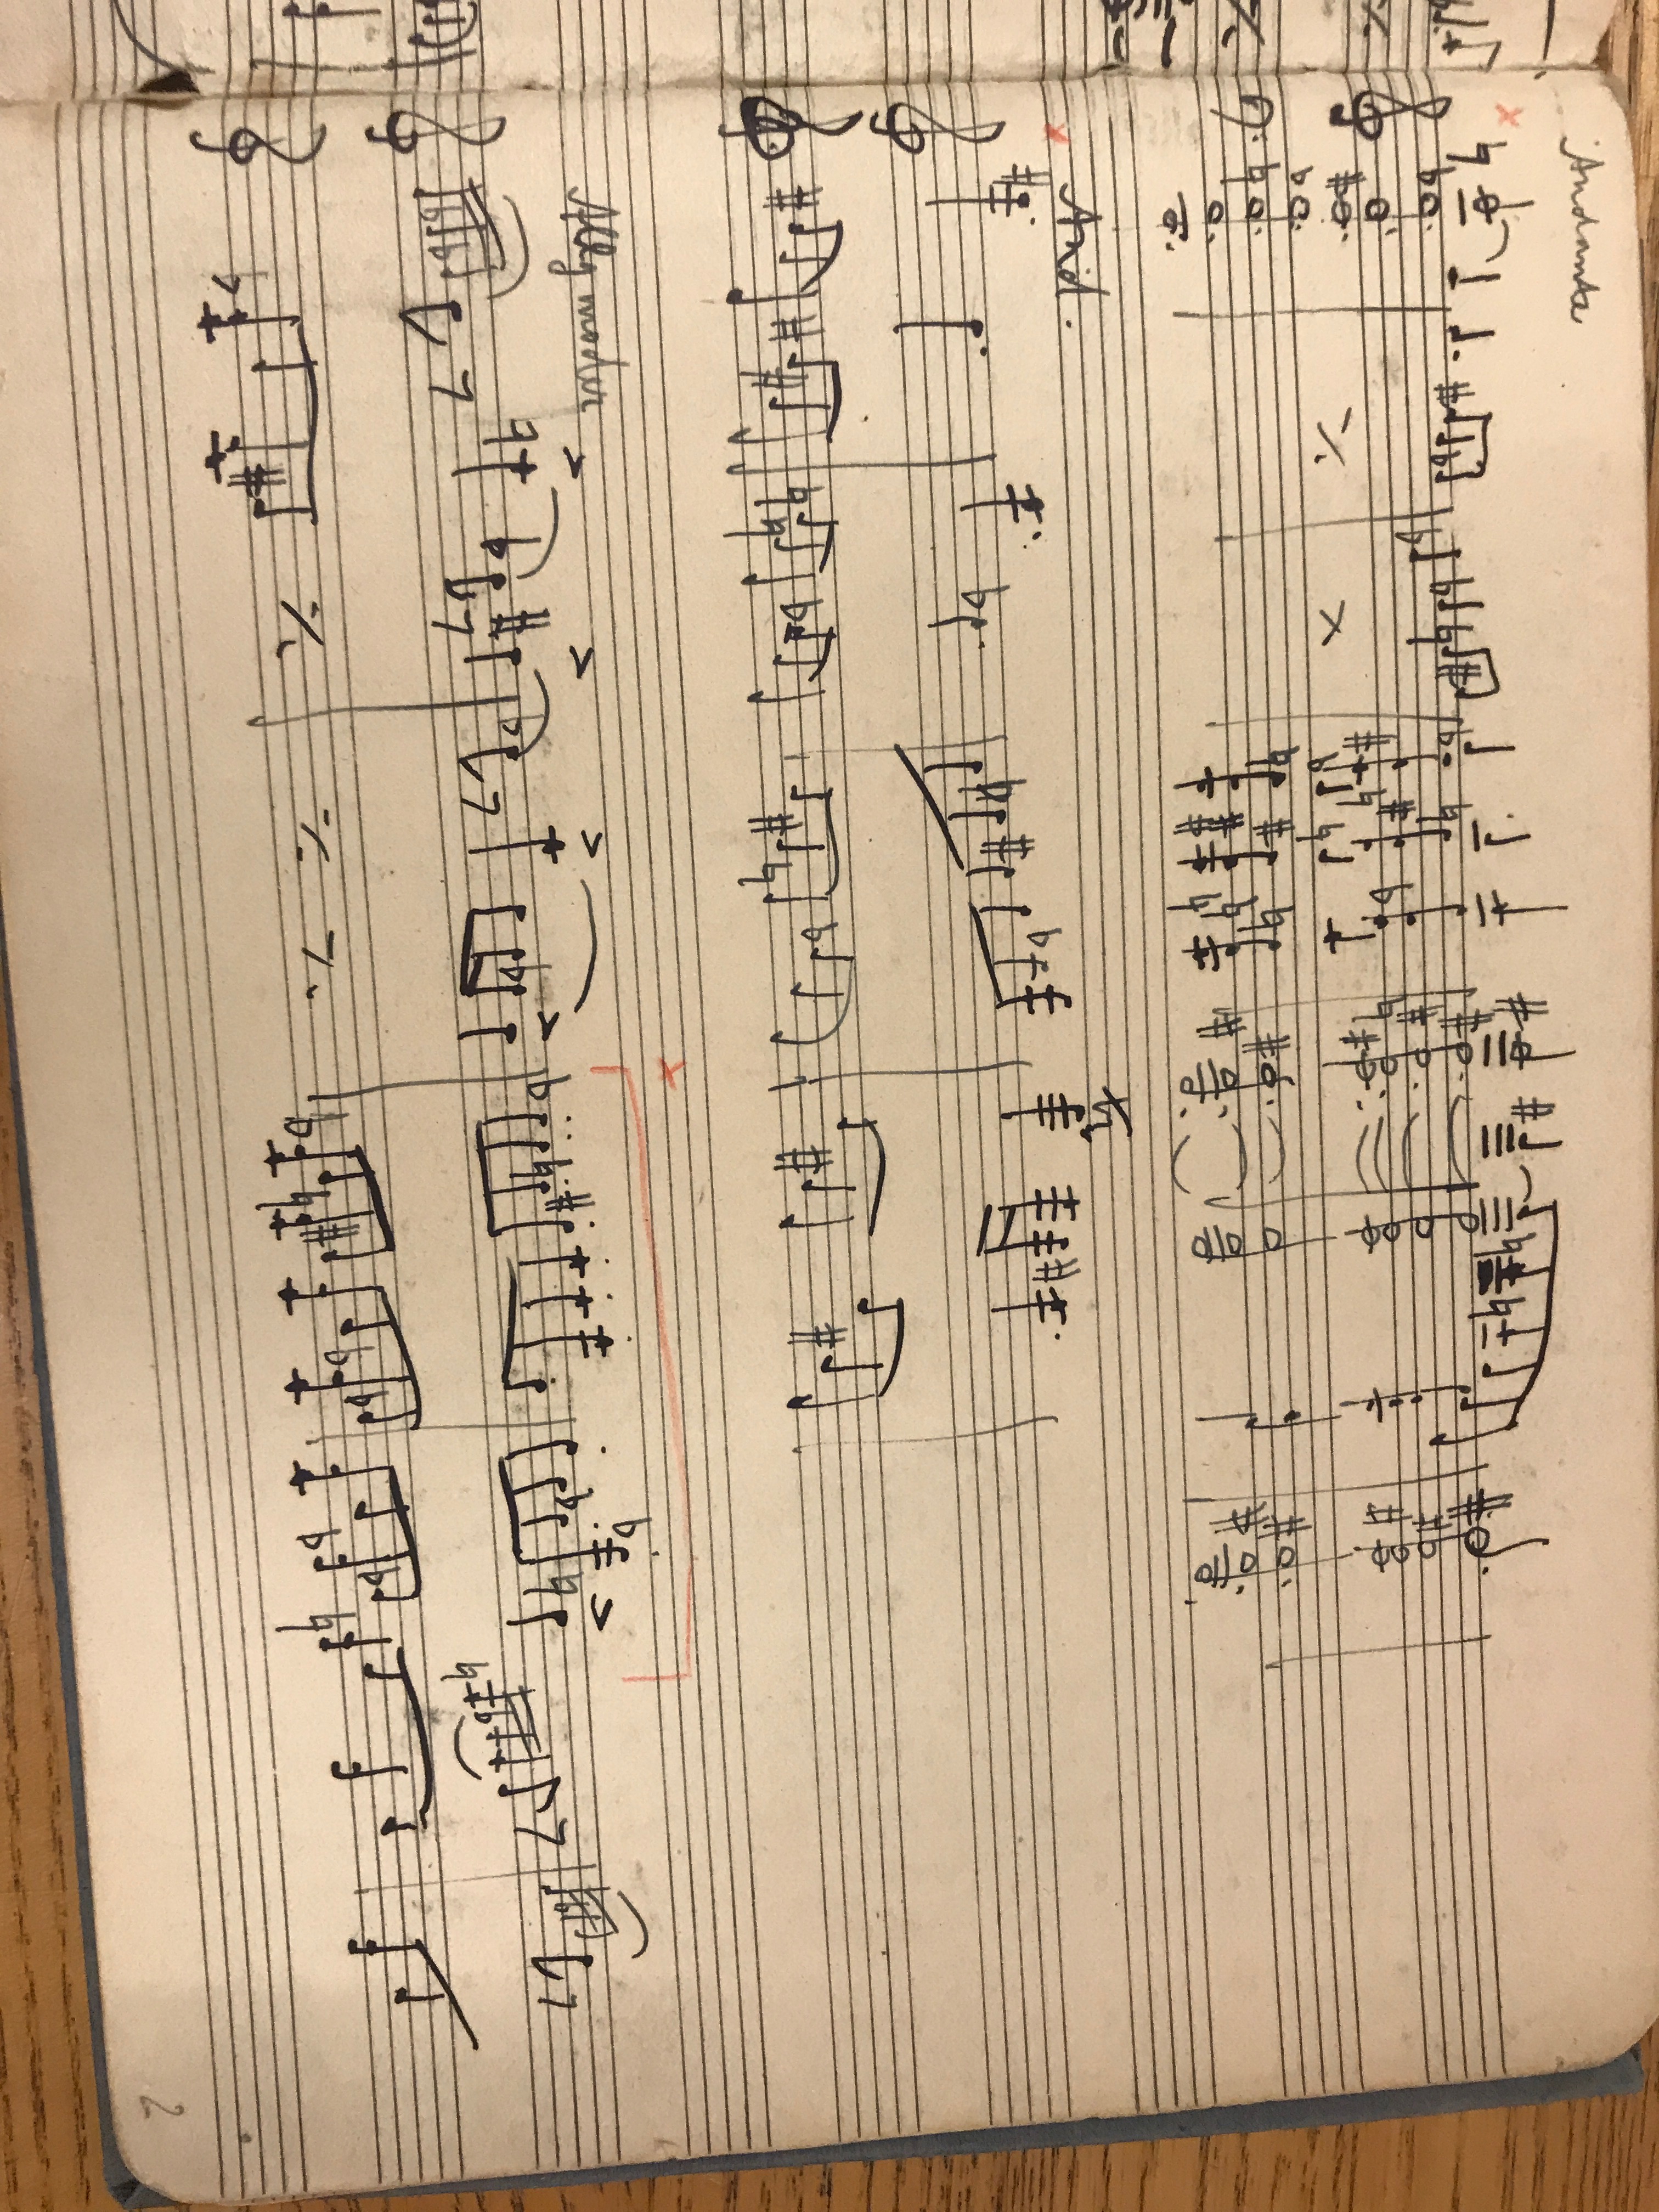 Andante
And.
tr
Allg moder
2